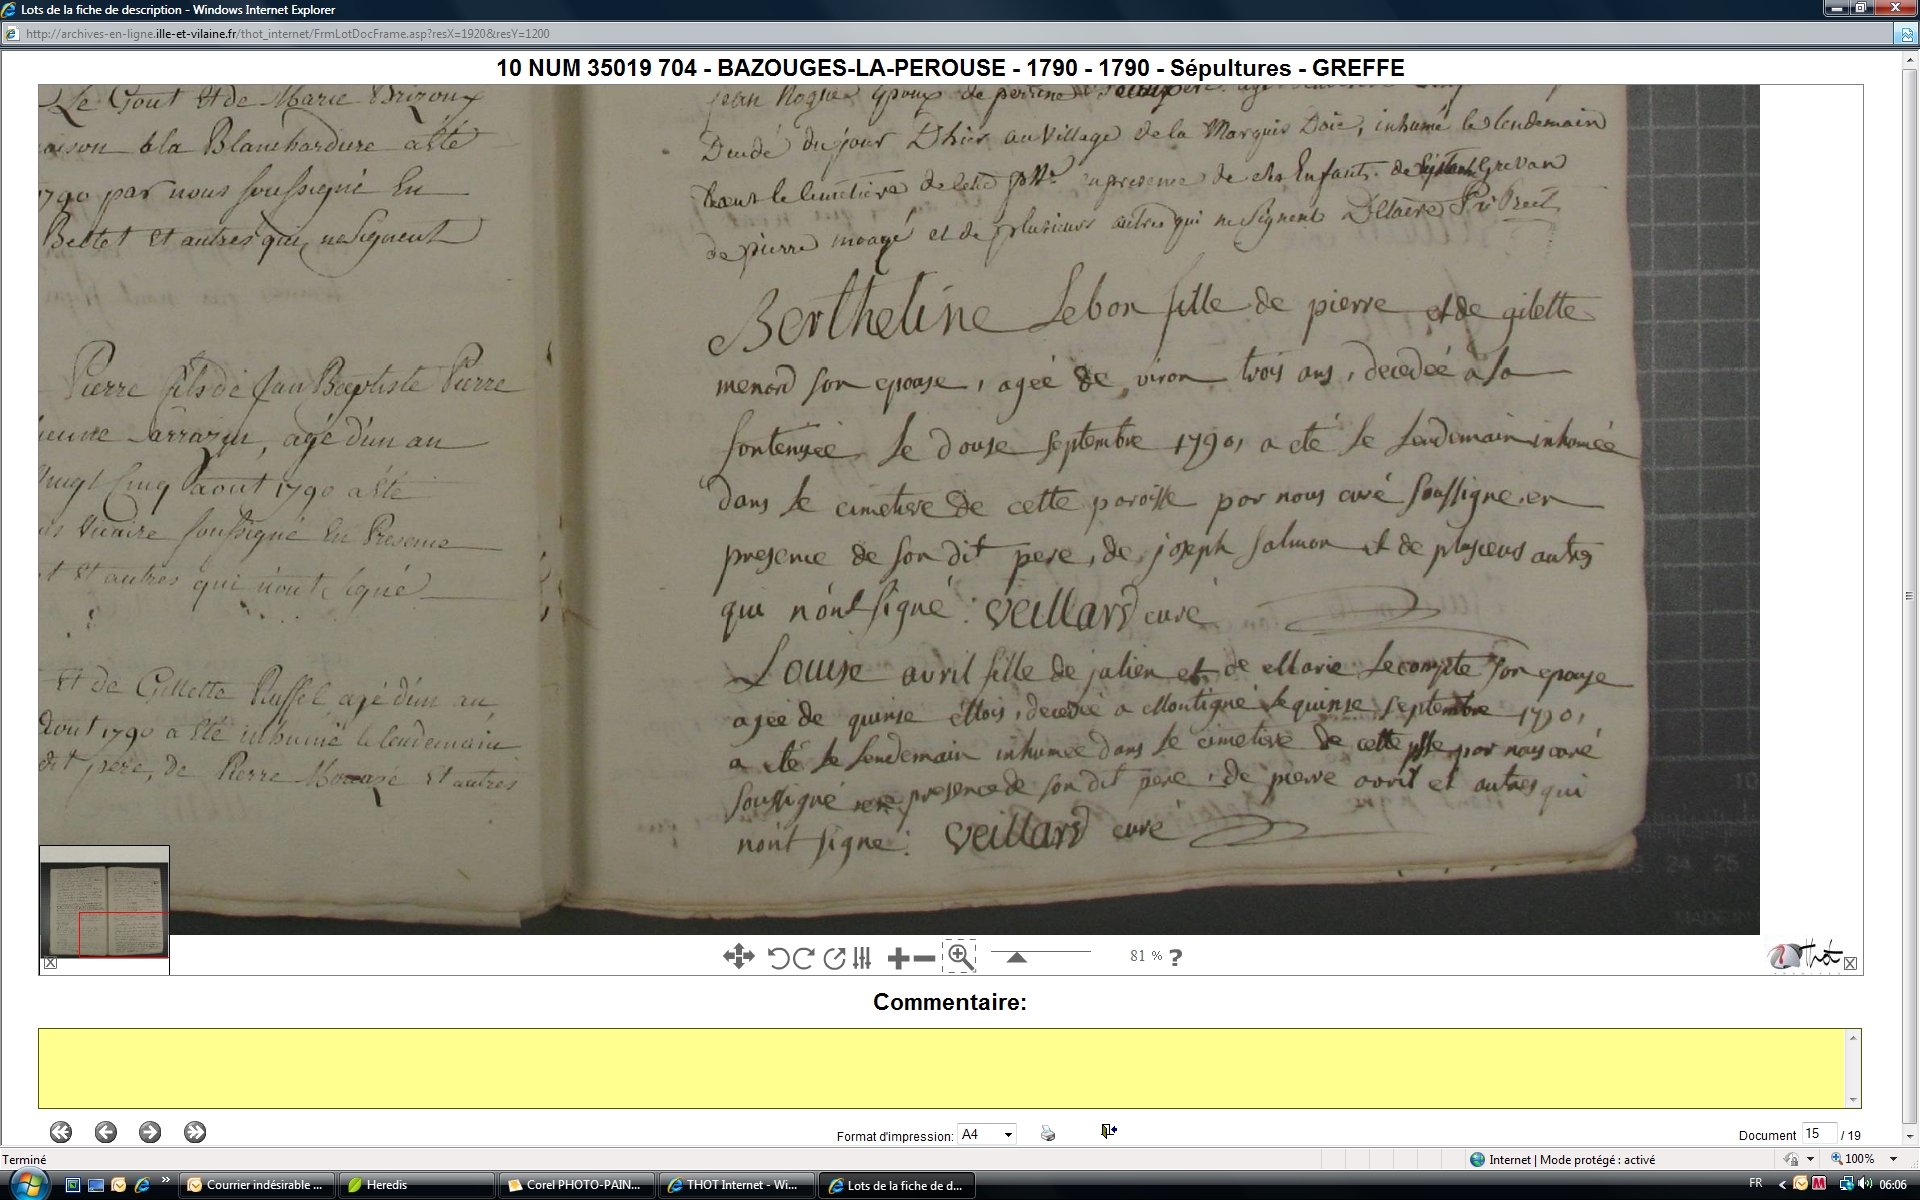 Lots de la fiche de description - Windows Internet Explorer
http://archives-en-ligne.ille-et-vilaine.fr/thot_internet/FrmLotDocFrame.asp?resX=1920&resY=1200
10 NUM 35019 704 - BAZOUGES-LA-PEROUSE - 1790 - 1790 - Sépultures - GREFFE
Le Gout Et de Marie Brizoux
a la Blanchardure a Eté
1790 par nous soussigné En
Bettet Et autres qui ne signent
Pierre fils de Jan Baptiste Pierre
Sarrazin, agé d'un an
Vingt Cinq aout 1790 a Eté
Vicaire soussigné En Presence
Et autres qui n'ont signé
Et de Gillette Ruffel agé d'un an
aout 1790 a Eté inhumé le lendemain
dit pere, de Pierre Et autres
jean epoux de perrine
Decedé du jour D'hier au village de la Marquis Doie, inhumé le lendemain
le Cimetiere de Cette en presence de des Enfants de Grevan
de pierre et de plusieurs autres qui ne signent
Bertheline Lebon fille de pierre et de gilette
menard son epouse, agée de viron trois ans, decedée à la
fontenée le douse septembre 1790, a eté le lendemain inhumée
dans le cimetiere de cette paroisse par nous curé soussigné en
presence de son dit pere, de joseph salmon et de plusieurs autres
qui n'ont signé : Veillard curé
Louise avril fille de julien et de Marie Lecompte son epouse
agée de quinse Mois, decedée a Montigné le quinse septembre 1790,
a eté le lendemain inhumée dans le cimetiere de cette psse par nous curé
soussigné presence de son dit pere, de pierre avril et autres qui
n'ont signé : Veillard curé
10
24 25
MADE IN
81 % ?
Thot
Commentaire:
Format d'impression: A4
Document 15 / 19
Terminé
Internet | Mode protégé : activé
100%
Courrier indésirable ...
Heredis
Corel PHOTO-PAIN...
THOT Internet - Wi...
Lots de la fiche de d...
FR
06:06